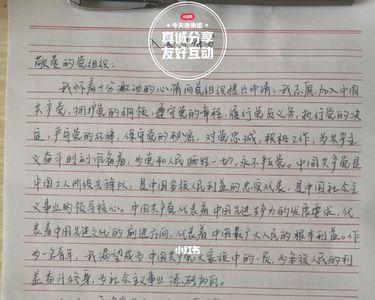 小红书
今天你承诺
真诚分享
友好互动
敬爱的党组织:
我怀着十分激动的心情向党组织提出申请:我志愿加入中国
共产党,拥护党的纲领,遵守党的章程,履行党员义务,执行党的决
定,严守党的纪律,保守党的秘密,对党忠诚,积极工作,为共产主
义奋斗终身,为党和人民牺牲一切,永不叛党。中国共产党是
中国工人阶级先锋队,是中国各族人民利益的忠实代表,是中国社会主
义事业的领导核心。中国共产党代表着中国先进生产力的发展要求,代
表着中国先进文化的前进方向,代表着中国最广大人民的根本利益。作
为一名青年,我希望成为中国共产党大家庭中的一员,为各族人民的利
益奋斗终身,为社会主义事业添砖加瓦。
小红书